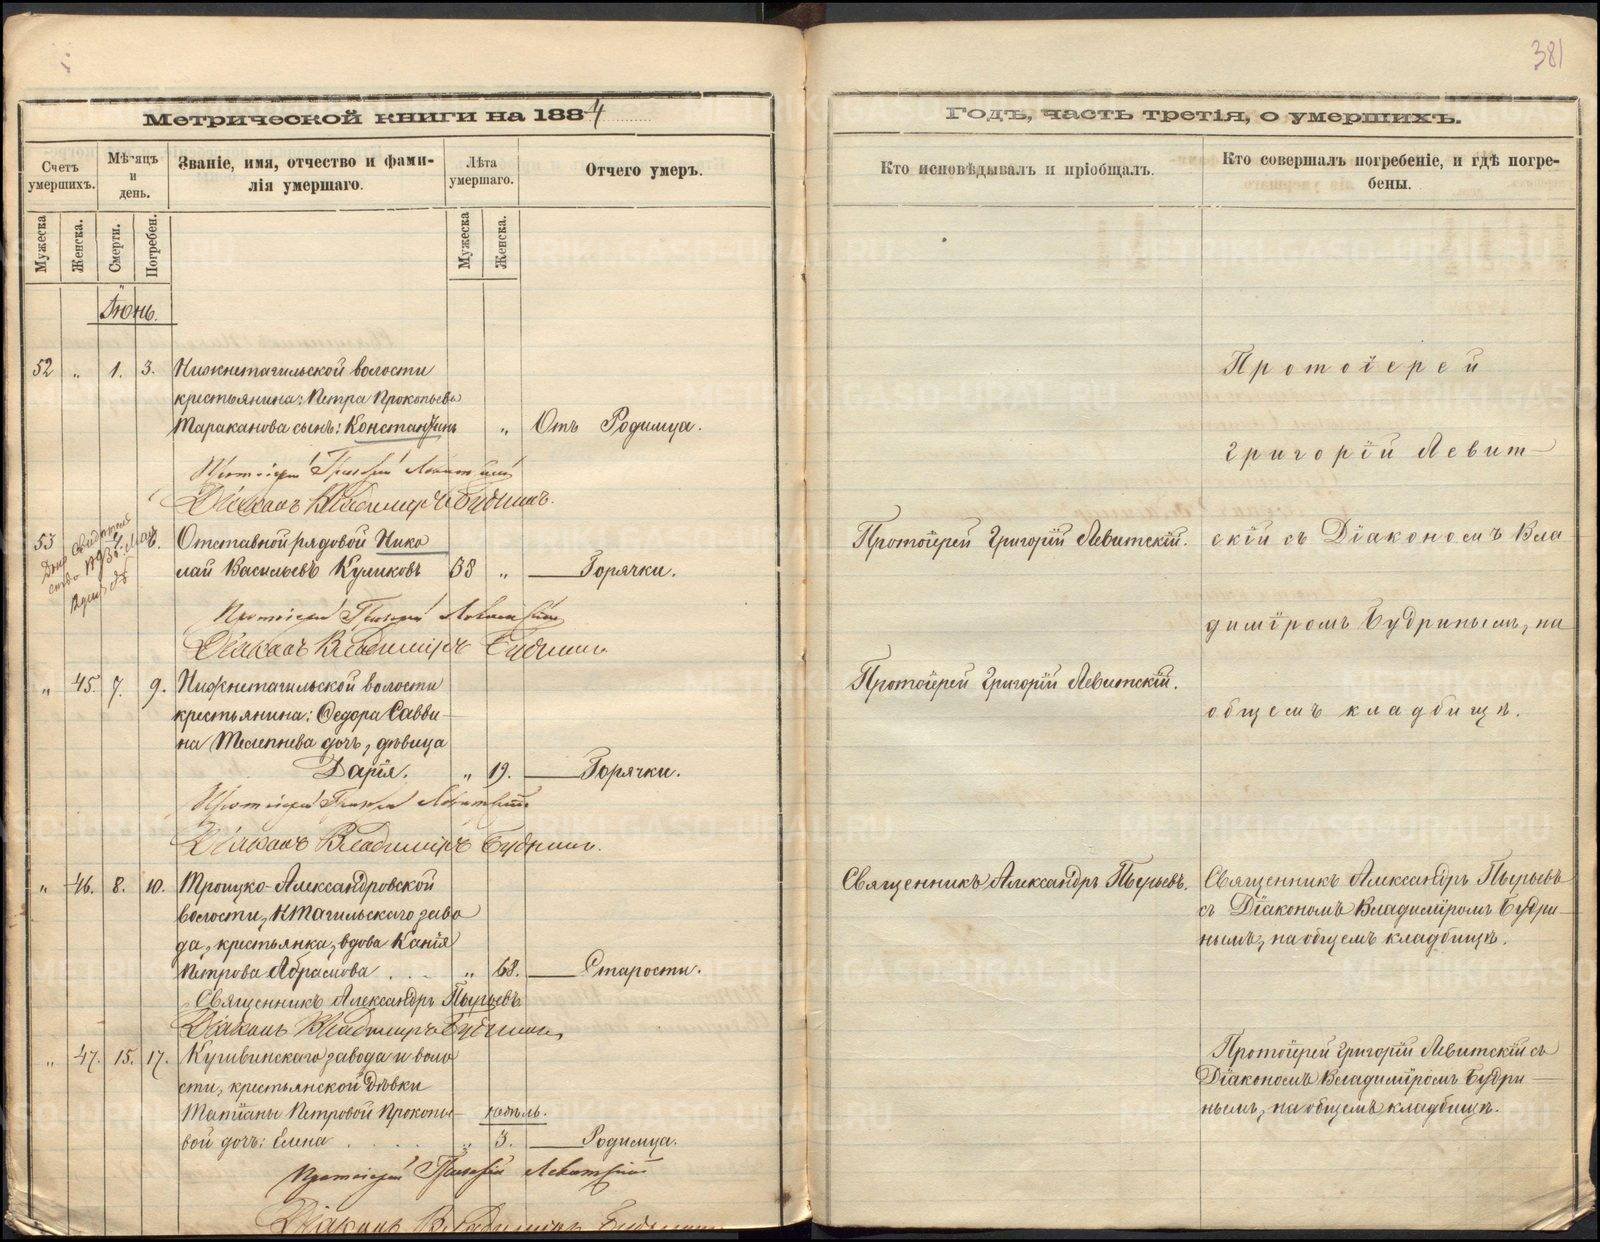 381
Метрической книги на 1884
Годъ, часть третія, о умершихъ.
Счетъ умершихъ.
Мѣсяцъ и день.
Званіе, имя, отчество и фами-
лія умершаго.
Лѣта умершаго.
Отчего умеръ.
Кто исповѣдывалъ и пріобщалъ.
Кто совершалъ погребеніе, и гдѣ погре-
бены.
Мужеска
Женска.
Смерти.
Погребен.
Мужеска
Женска.
Іюнь.
52 „ 1. 3. Нижнетагильской волости
крестьянина: Петра Прокопьева
Тараканова сынъ: Константинъ „ Отъ Родимца.
Протоіерей Григорій Левитскій
Діаконъ Владиміръ Будринъ.
53 4. 6. Отставной рядовой Нико
лай Васильевъ Куликовъ 38 „ — Горячки.
Протоіерей Григорій Левитскій
Діаконъ Владиміръ Будринъ
„ 45. 7. 9. Нижнетагильской волости
крестьянина: Ѳедора Савви-
на Телепнева дочь, дѣвица
Дарія. „ 19. — Горячки.
Протоіерей Григорій Левитскій
Діаконъ Владиміръ Будринъ.
„ 46. 8. 10. Троицко-Александровской
волости, Н Тагильскаго заво
да, крестьянка, вдова
Петрова Абрамова . . . „ 68. — Старости.
Священникъ Александръ Пырьевъ
Діаконъ Владиміръ Будринъ
„ 47. 15. 17. Кушвинскаго завода и воло
сти, крестьянской Дѣвки
Татіаны Петровой Прокопь-
недѣль.
вой дочь: Елена . . . . „ 3. — Родимца.
Протоіерей Григорій Левитскій
Діаконъ Владиміръ Будринъ
Протоіерей Григорій Левитскій.
Протоіерей Григорій Левитскій.
Священникъ Александръ Пырьевъ.
Протоіерей
Григорій Левит—
скій съ Діакономъ Вла
диміромъ Будринымъ, на
общемъ кладбищѣ.
Священникъ Александръ Пырьевъ
съ Діакономъ Владиміромъ Будри—
нымъ, на общемъ кладбищѣ.
Протоіерей Григорій Левитскій съ
Діакономъ Владиміромъ Будри—
нымъ, на общемъ кладбищѣ.